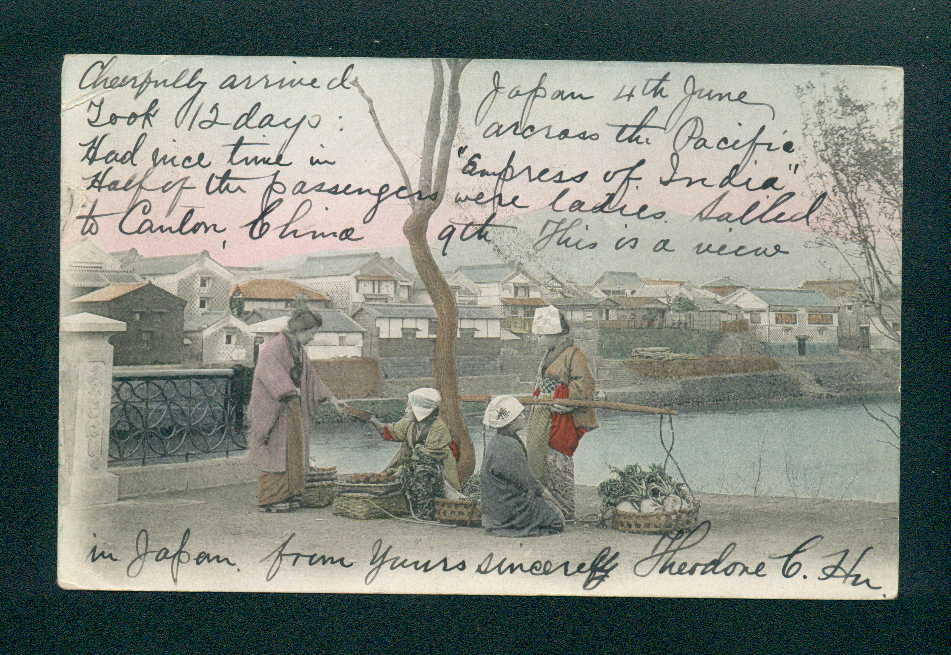 Cheerfully arrived Japan 4th June
Took 12 days: across the Pacific
Had nice time in "Empress of India"
Half of the passengers were ladies. Sailed
to Canton, China 9th This is a view
in Japan. from Yours sincerely Theodore C. Hu.